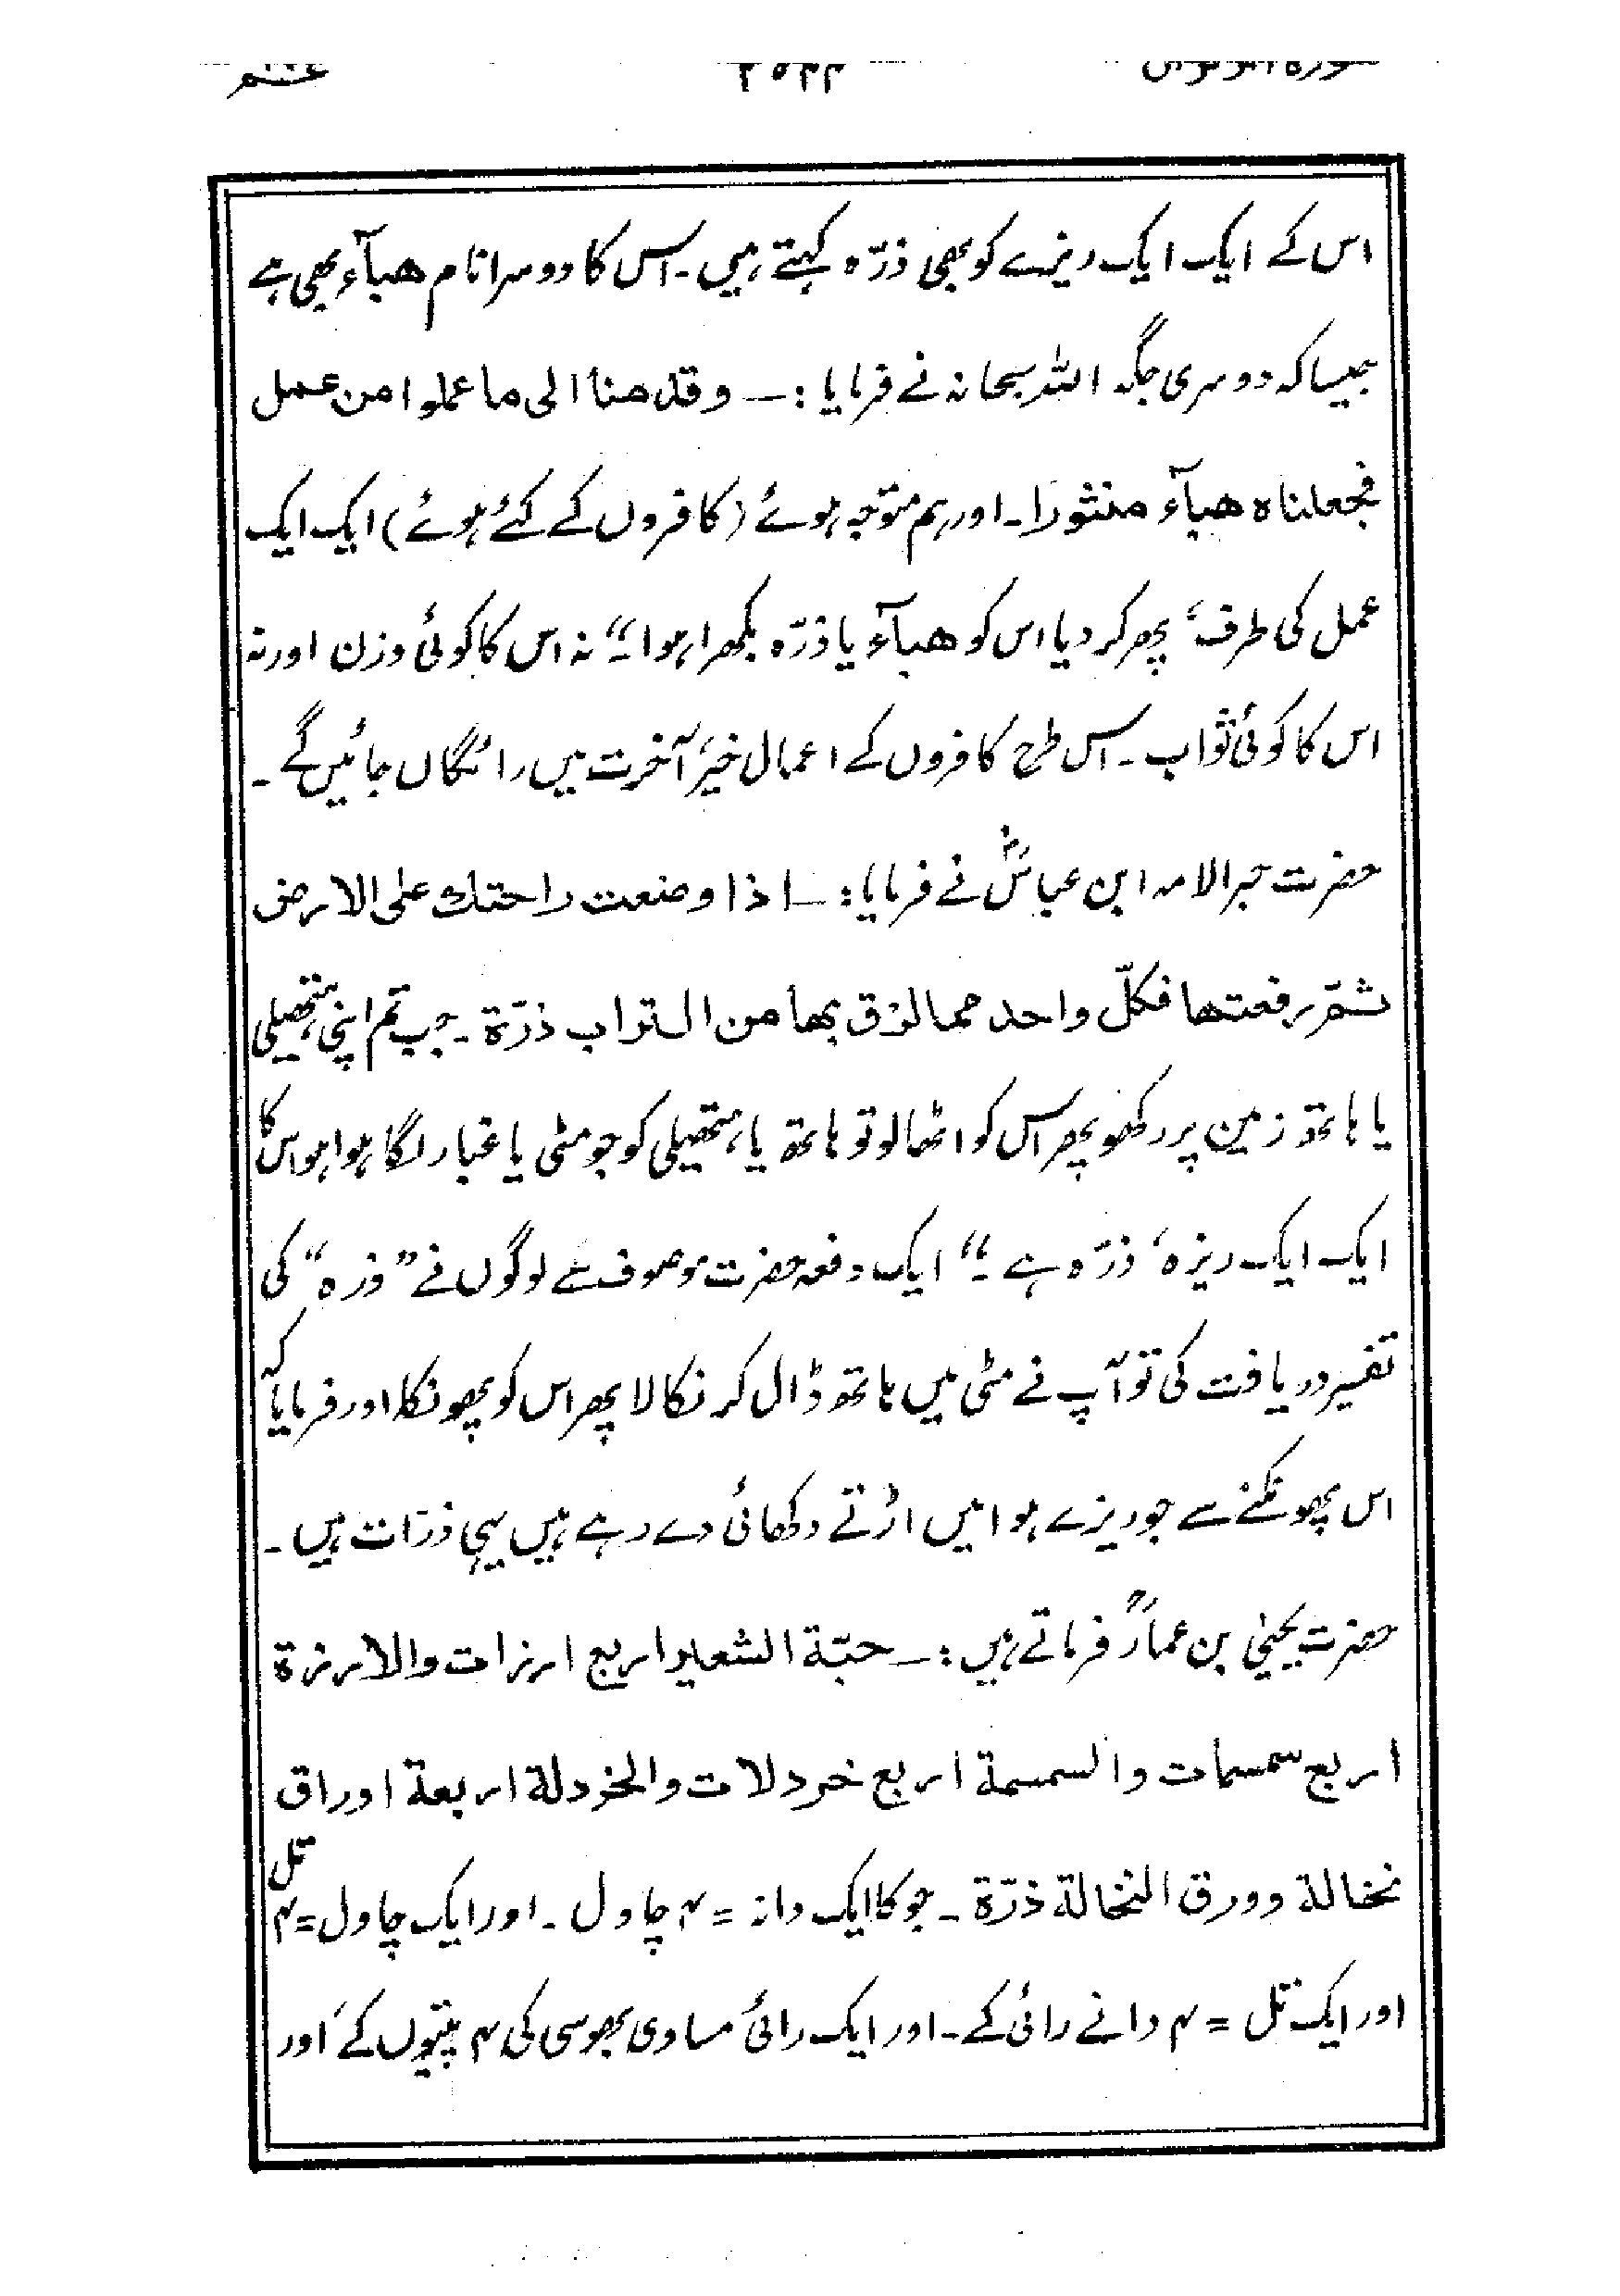 اس کے ایک ایک ریزے کو بھی ذرّہ کہتے ہیں۔ اس کا دوسرا نام ھبآء بھی ہے
جیسا کہ دوسری جگہ اللہ سبحانہ نے فرمایا :ـــ وقدمنا الی ما عملوا من عمل
فجعلناہ ھبآء منثورا۔ اور ہم متوجہ ہوئے (کافروں کے کئے ہوئے) ایک ایک
عمل کی طرف، پھر کر دیا اس کو ھبآء یا ذرّہ بکھرا ہوا۔“ نہ اس کا کوئی وزن اور نہ
اس کا کوئی ثواب۔ اس طرح کافروں کے اعمال خیر، آخرت میں رائگاں جائیں گے۔
حضرت حبر الامہ ابن عباسؓ نے فرمایا :ـــ اذا وضعت راحتك علی الارض
ثمّ رفعتھا فکلّ واحد مما لزق بھا من التراب ذرّة۔ جب تم اپنی ہتھیلی
یا ہاتھ زمین پر رکھو پھر اس کو اٹھالو تو ہاتھ یا ہتھیلی کو جو مٹی یا غبار لگا ہوا ہو اس کا
ایک ایک ریزہ، ذرّہ ہے۔“ ایک دفعہ حضرت موصوف سے لوگوں نے ”ذرہ“ کی
تفسیر دریافت کی تو آپ نے مٹی میں ہاتھ ڈال کر نکالا پھر اس کو پھونکا اور فرمایا کہ
اس پھونکنے سے جو ریزے ہوا میں اڑتے دکھائی دے رہے ہیں یہی ذرّات ہیں۔
حضرت یحییٰ بن عمارؒ فرماتے ہیں :ـــ حبّة الشعیر اربع ارزات والارزة
اربع سمسمات والسمسمة اربع خردلات والخردلة اربعة اوراق
نخالة وورق النخالة ذرّة۔ جو کا ایک دانہ = ۴ چاول۔ اور ایک چاول = ۴ تل
اور ایک تل = ۴ دانے رائی کے۔ اور ایک رائی مساوی بھوسی کی ۴ پتیوں کے، اور